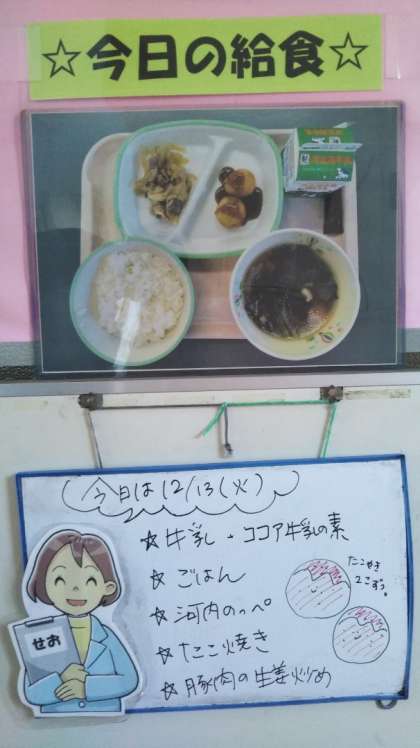 ☆今日の給食☆
今日は12/13(火)
☆牛乳・ココア牛乳の素
☆ごはん
☆河内のっぺ
☆たこ焼き
☆豚肉の生姜炒め
たこやき
2こずつ。
せお